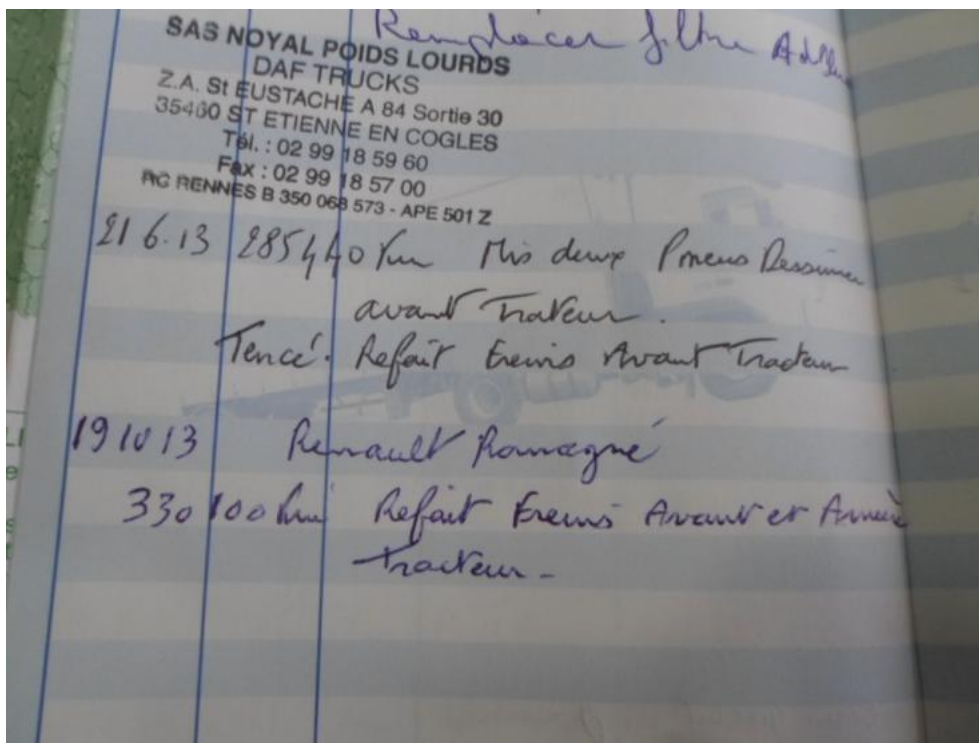 Remplacer filtre Adblue
SAS NOYAL POIDS LOURDS
DAF TRUCKS
Z.A. St EUSTACHE A 84 Sortie 30
35460 ST ETIENNE EN COGLES
Tél. : 02 99 18 59 60
Fax : 02 99 18 57 00
RC RENNES B 350 068 573 - APE 501 Z
21 6.13 285440 km Mis deux Pneus
avant Tracteur.
Refait Freins Avant Tracteur
19 10 13 Renault Romagné
330 100 km Refait Freins Avant et Arrière
tracteur -